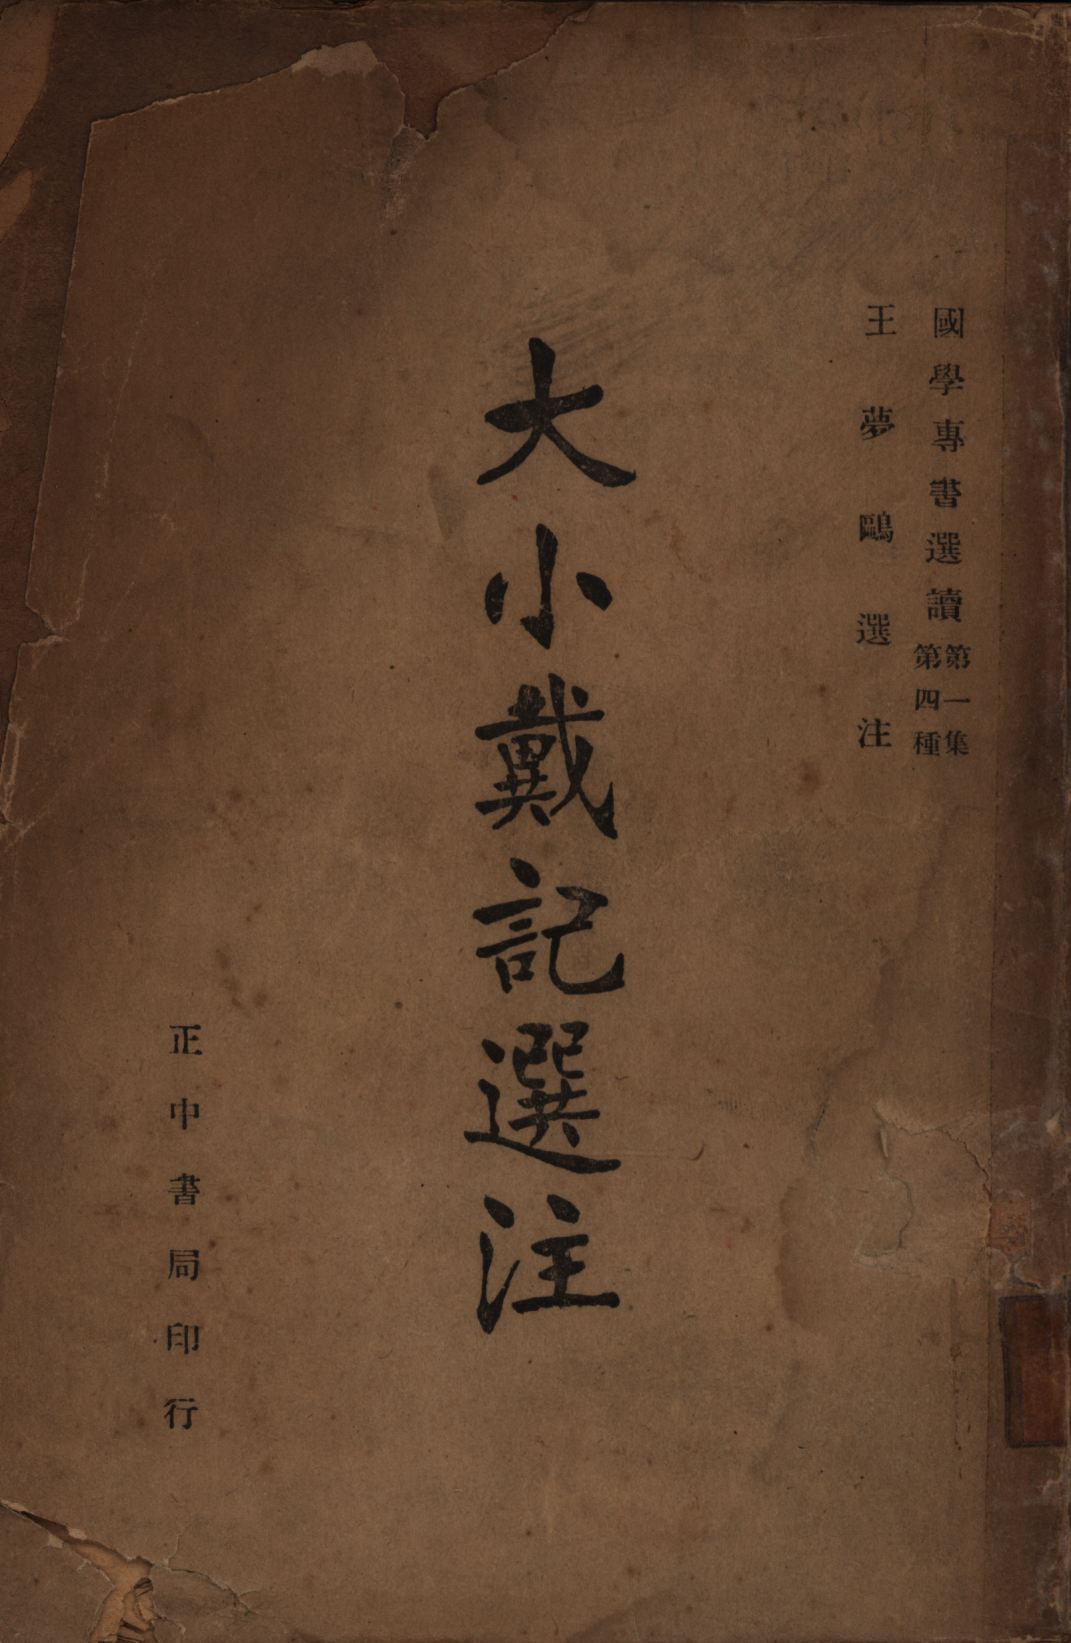 國學專書選讀第一集
第四種
王夢鷗選注
大小戴記選注
正中書局印行